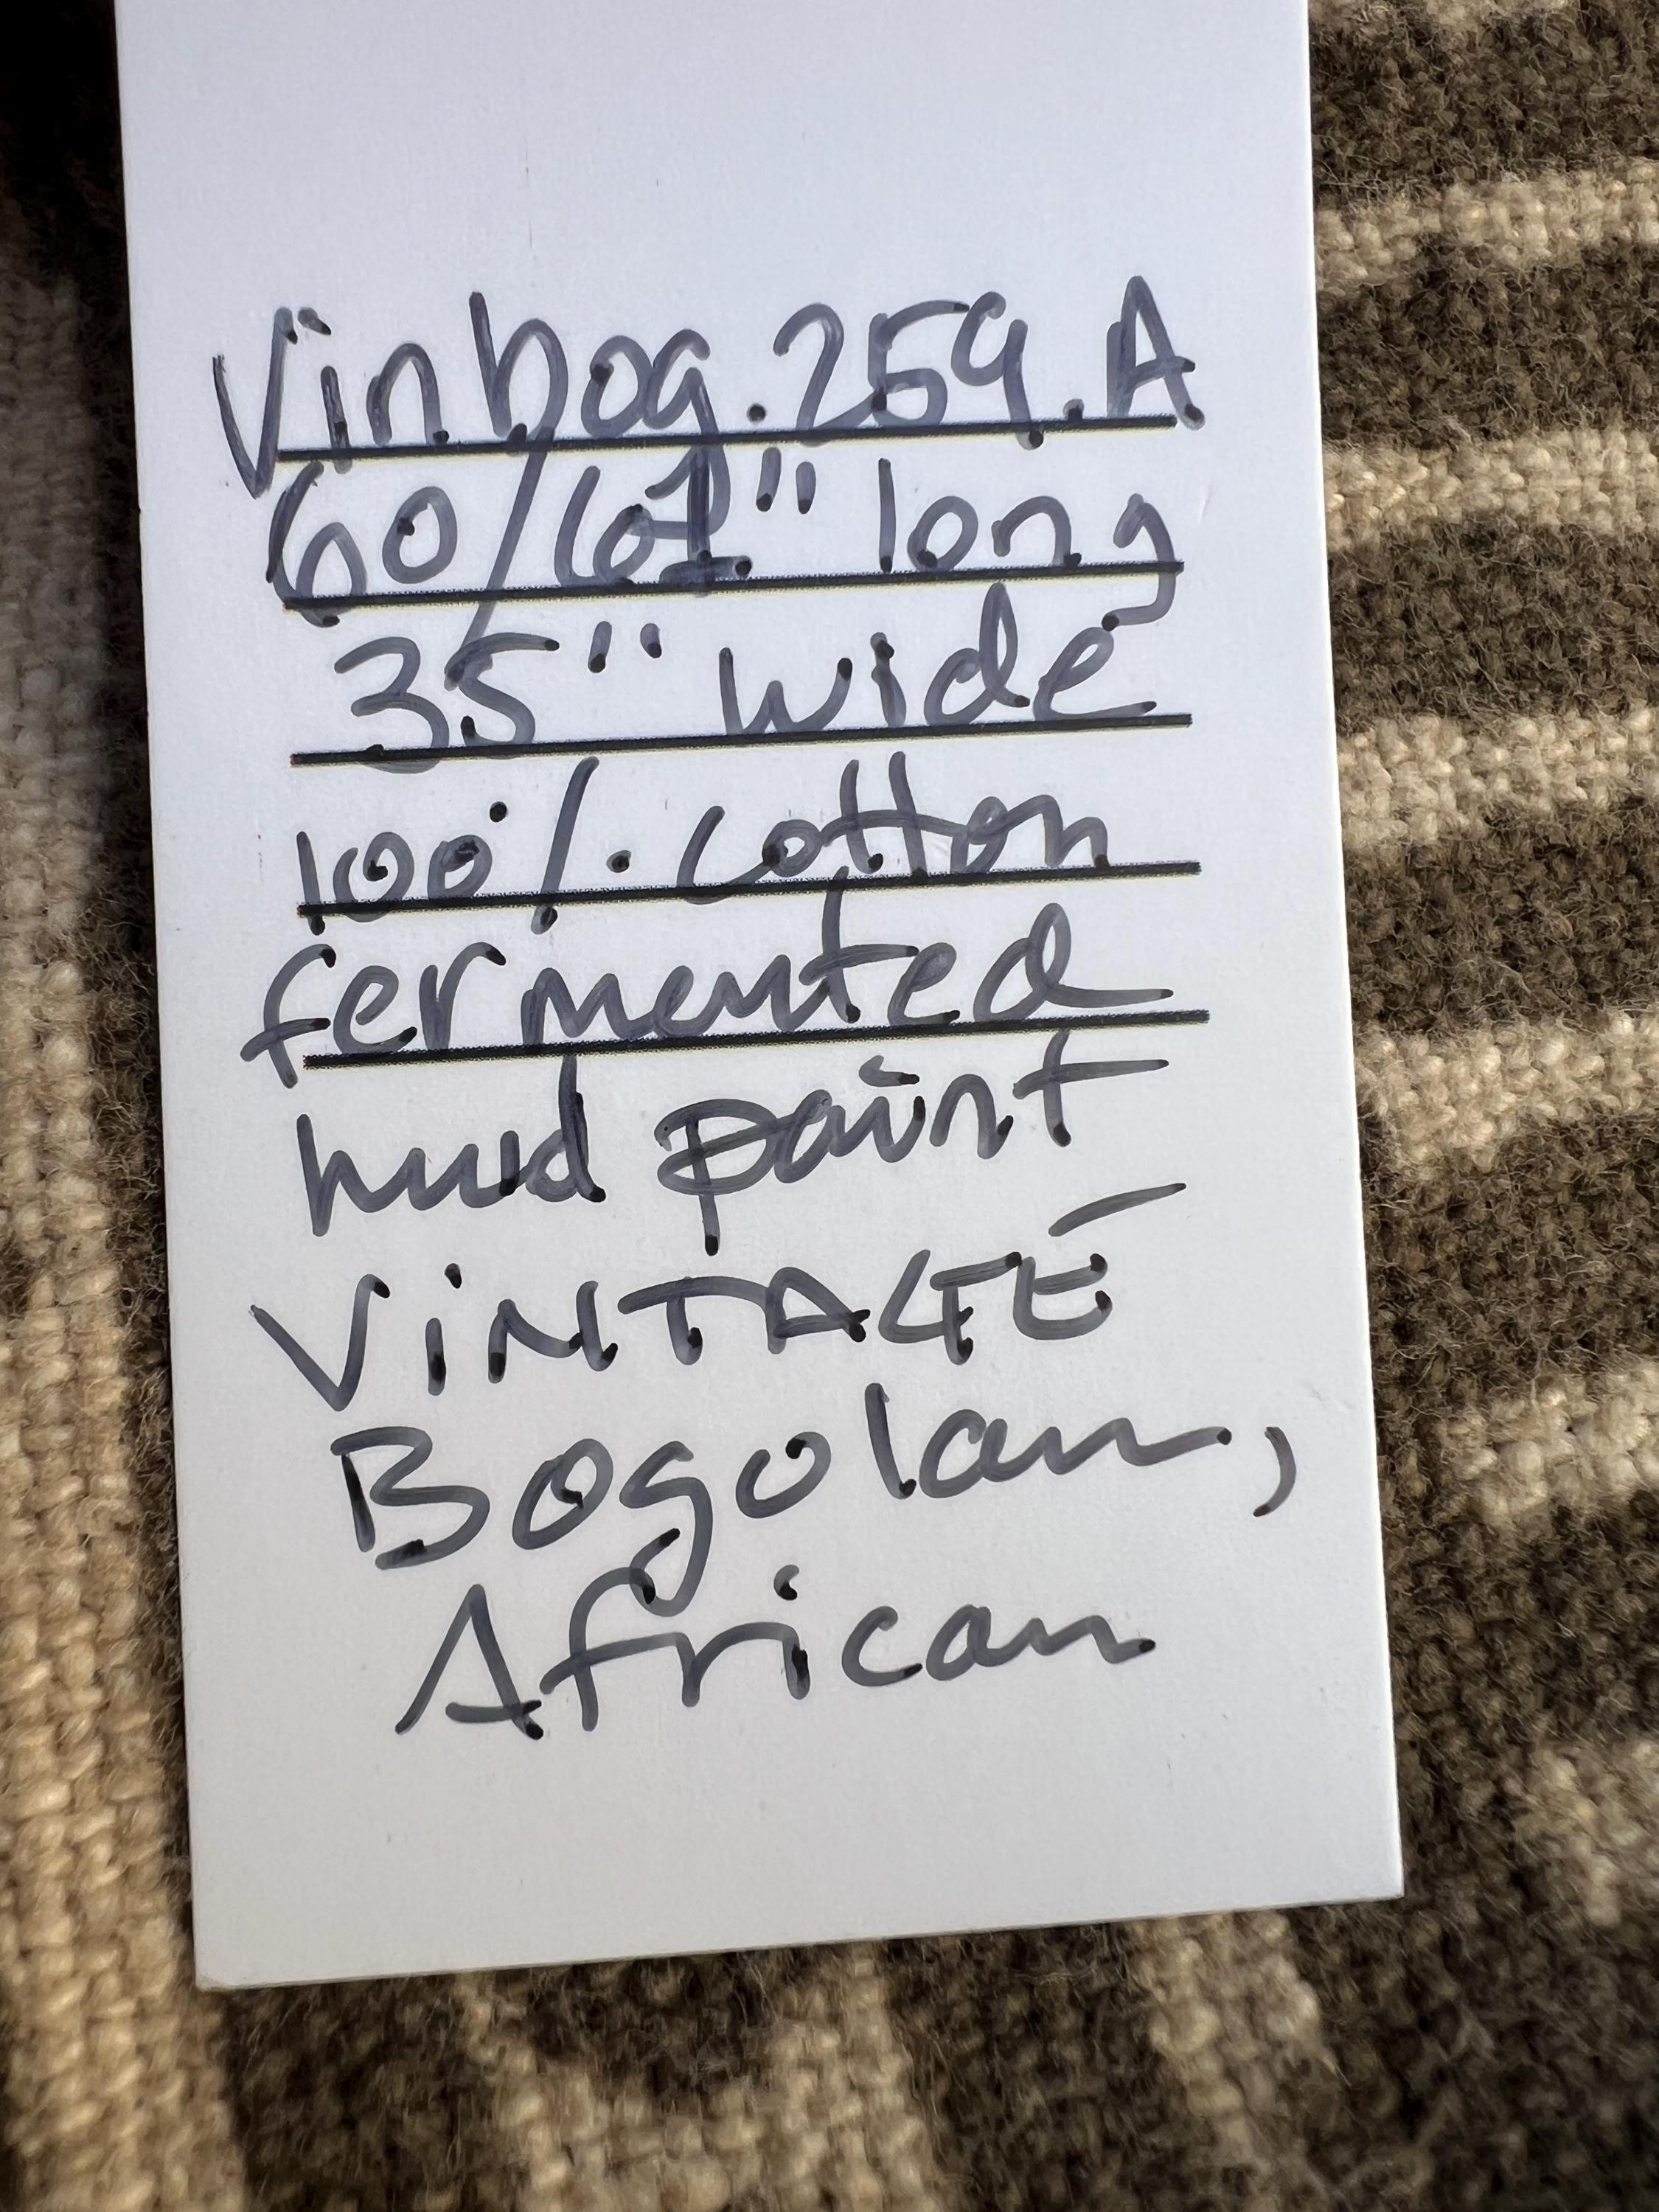 Vinbog.259.A
60/61" long
35" wide
100% cotton
fermented
mud paint
ViNTAGE
Bogolan,
African